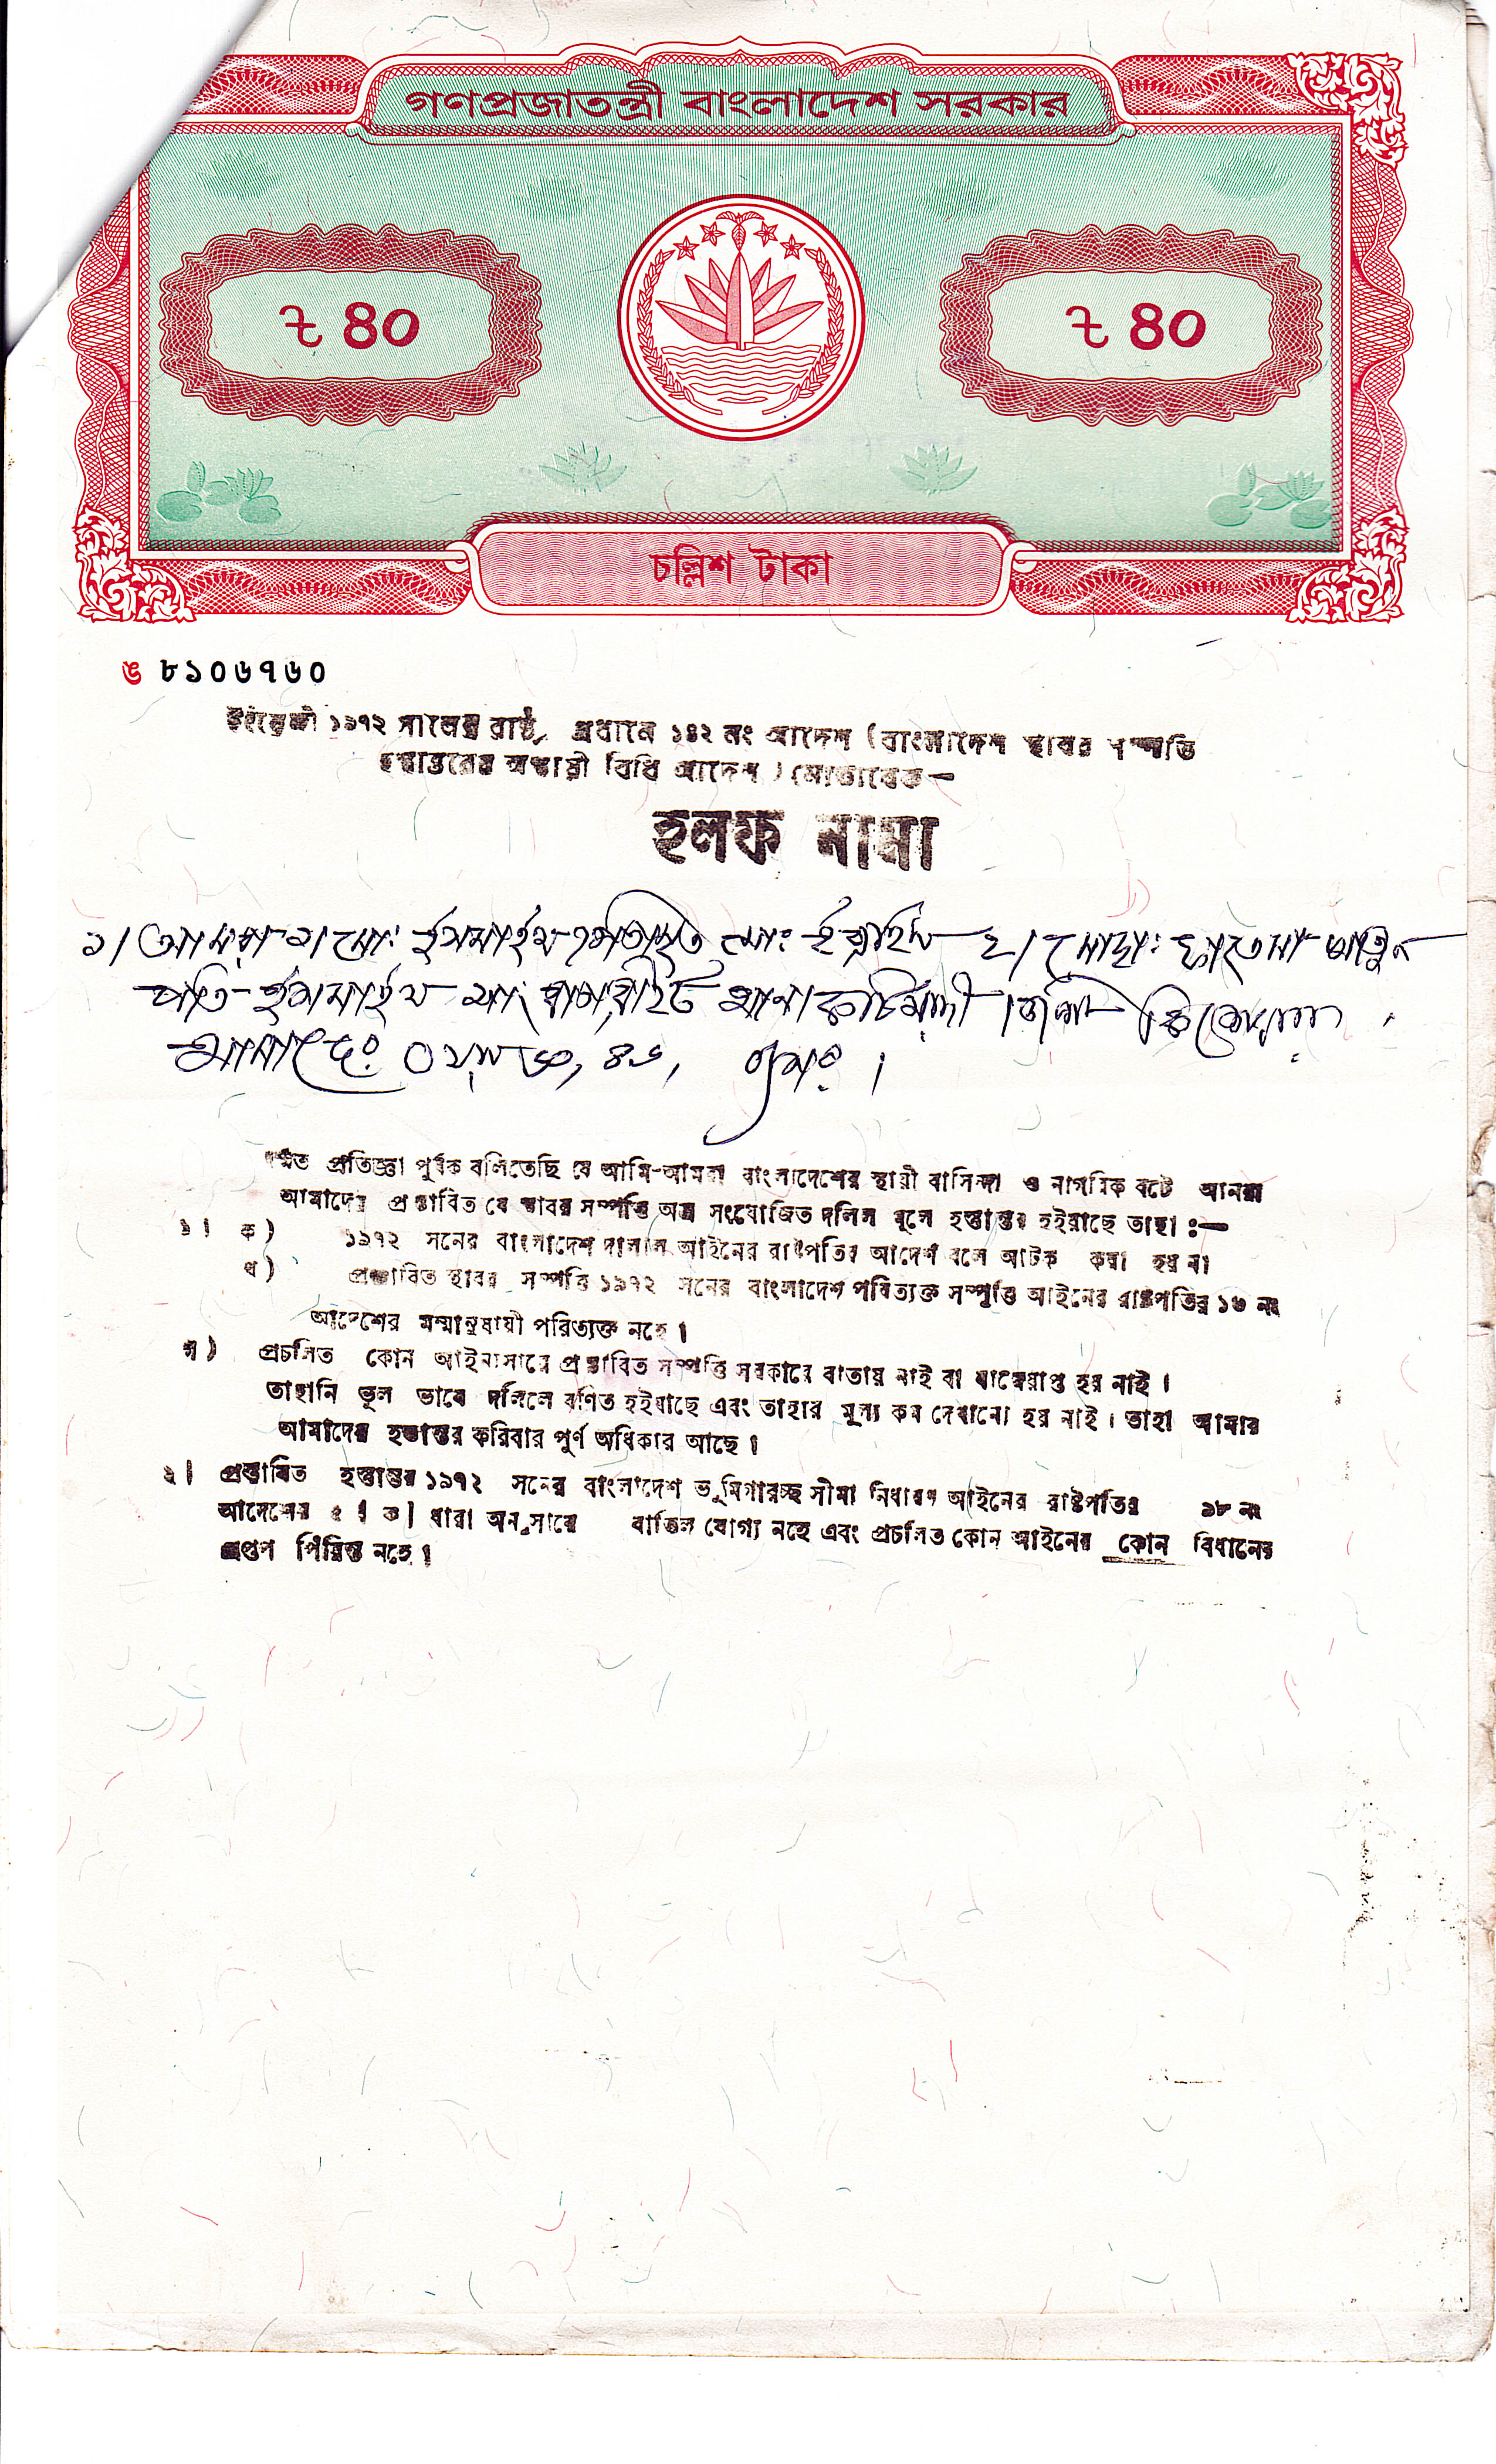 গণপ্রজাতন্ত্রী বাংলাদেশ সরকার
৳ ৪০
৳ ৪০
চল্লিশ টাকা
ঙ ৮১০৬৭৬০
ইংরেজী ১৯৭২ সালের রাষ্ট্র প্রধানে ১৪২ নং আদেশ (বাংলাদেশ স্থাবর সম্পত্তি
হস্তান্তরের অস্থায়ী বিধি আদেশ) মোতাবেক—
হলফ নামা
১। আমরা মোঃ ইসমাইল মোঃ ইব্রাহিম ২। মোছাঃ ফাতেমা খাতুন
পতি-ইসমাইল সাং থানা কটিয়াদী জেলা কিশোরগঞ্জ
বয়স
প্রতিজ্ঞা পূর্বক বলিতেছি যে আমি-আমরা বাংলাদেশের স্থায়ী বাসিন্দা ও নাগরিক বটে আমরা
আমাদের প্রস্তাবিত যে স্থাবর সম্পত্তি অত্র সংযোজিত দলিল মুলে হস্তান্তর হইয়াছে তাহা :—
১। ক) ১৯৭২ সনের বাংলাদেশ দালাল আইনের রাষ্টপতির আদেশ বলে আটক করা হয় না
খ) প্রস্তাবিত স্থাবর সম্পত্তি ১৯৭২ সনের বাংলাদেশ পরিত্যক্ত সম্পত্তি আইনের রাষ্টপতির ১৬ নং
আদেশের মর্মানুযায়ী পরিত্যক্ত নহে।
গ) প্রচলিত কোন আইনাসারে প্রস্তাবিত সম্পত্তি সরকারে বাতায় নাই বা বাজেয়াপ্ত হয় নাই।
তাহানি ভুল ভাবে দলিলে বর্ণিত হইয়াছে এবং তাহার মূল্য কম দেখানো হয় নাই। তাহা আমার
আমাদের হস্তান্তর করিবার পুর্ণ অধিকার আছে।
২। প্রস্তাবিত হস্তান্তর ১৯৭২ সনের বাংলাদেশ সীমা নির্ধারণ আইনের রাষ্টপতির ৯৮ নং
আদেশের ৫। ক। ধারা অনুসারে বাতিল যোগ্য নহে এবং প্রচলিত কোন আইনের কোন বিধানের
নহে।